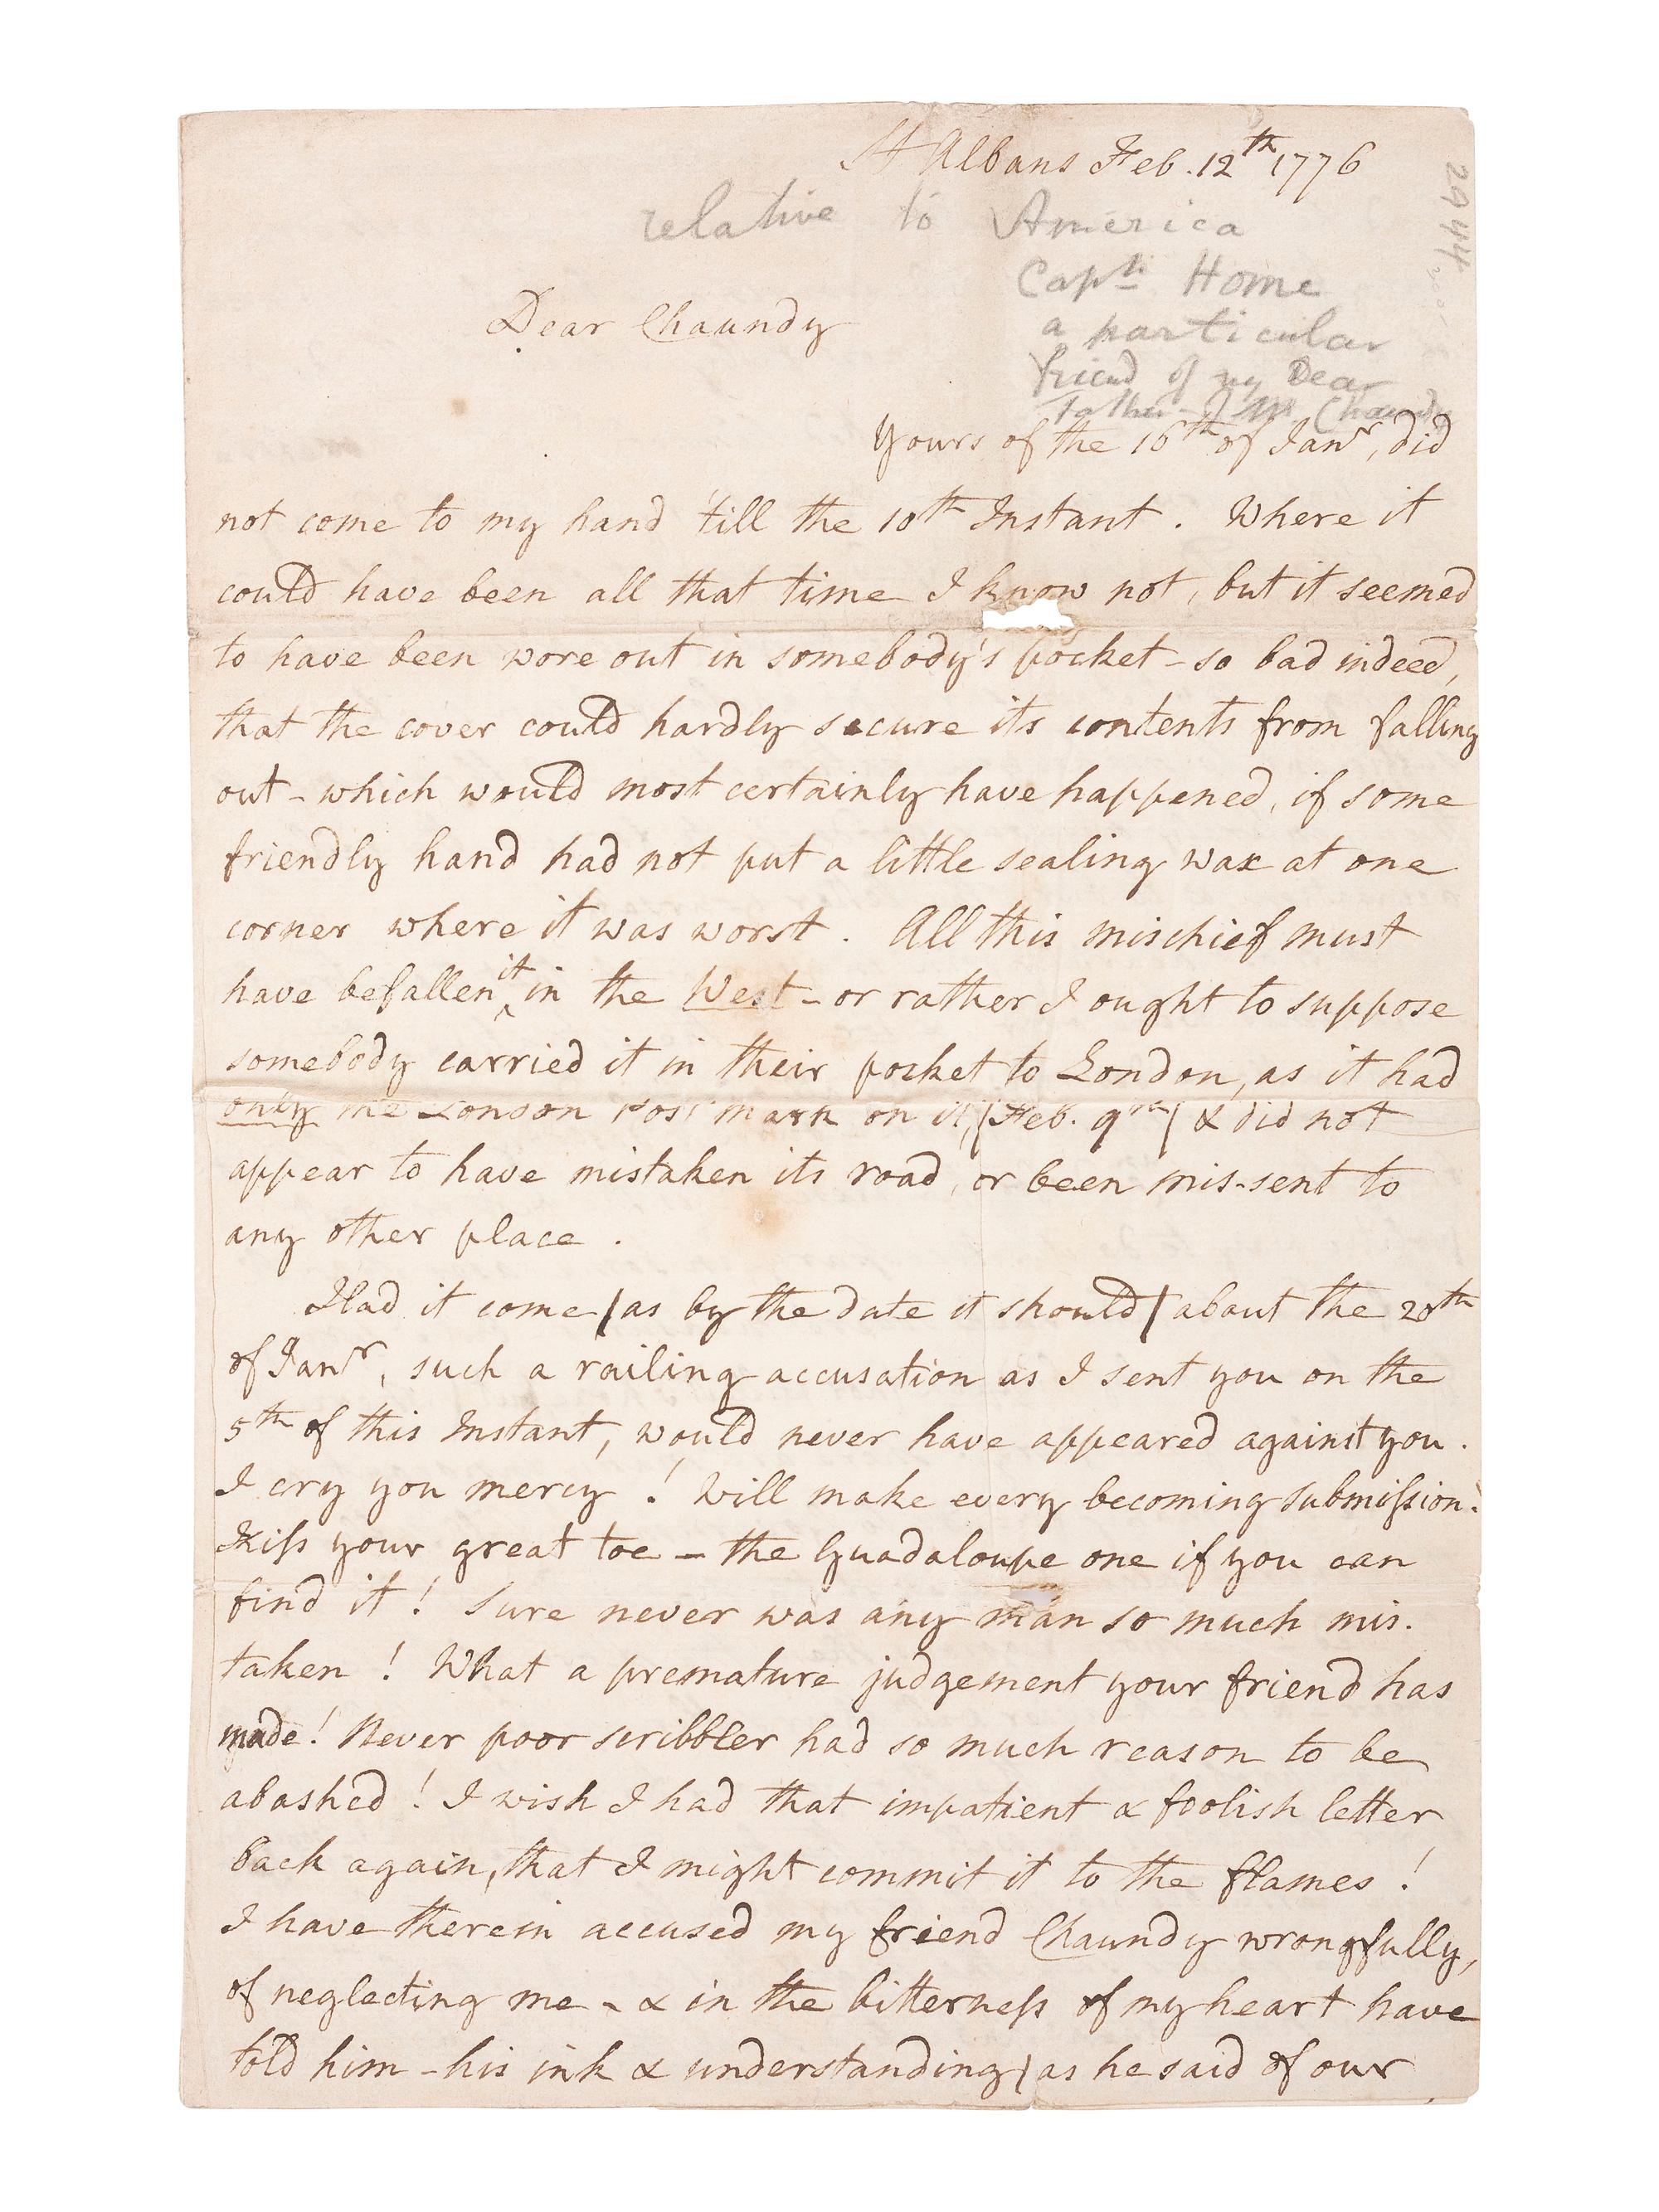 St Albans Feb. 12th 1776
relative to America
Captn Home
a particular
friend of my Dear
Father - J M Chaundy
2944
Dear Chaundy
Yours of the 16th of Janr, did
not come to my hand 'till the 10th Instant. Where it
could have been all that time I know not, but it seemed
to have been wore out in somebody's pocket - so bad indeed,
that the cover could hardly secure its contents from falling
out - which would most certainly have happened, if some
friendly hand had not put a little sealing wax at one
corner where it was worst. All this mischief must
have befallen it in the West - or rather I ought to suppose
somebody carried it in their pocket to London, as it had
only the London Post mark on it, (Feb. 9th) & did not
appear to have mistaken its road, or been mis-sent to
any other place.
Had it come (as by the date it should) about the 20th
of Janr, such a railing accusation as I sent you on the
5th of this Instant, would never have appeared against you.
I cry you mercy! Will make every becoming submiſsion.
Kiſs your great toe - the Guadaloupe one if you can
find it! Sure never was any man so much mis-
taken! What a premature judgement your friend has
made! Never poor scribbler had so much reason to be
abashed! I wish I had that impatient & foolish letter
back again, that I might commit it to the flames!
I have therein accused my friend Chaundy wrongfully,
of neglecting me - & in the bitterneſs of my heart have
told him - his ink & understanding (as he said of our